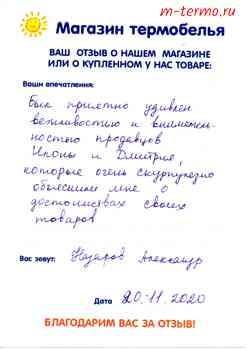 m-termo.ru
Магазин термобелья
ВАШ ОТЗЫВ О НАШЕМ МАГАЗИНЕ
ИЛИ О КУПЛЕННОМ У НАС ТОВАРЕ:
Ваши впечатления:
Был приятно удивлен
вежливостью и вниматель-
ностью продавцов
и Дмитрия,
которые очень скурпулезно
объяснили мне о
достоинствах своих
товаров
Вас зовут: Назаров Александр
Дата 20.11.2020
БЛАГОДАРИМ ВАС ЗА ОТЗЫВ!